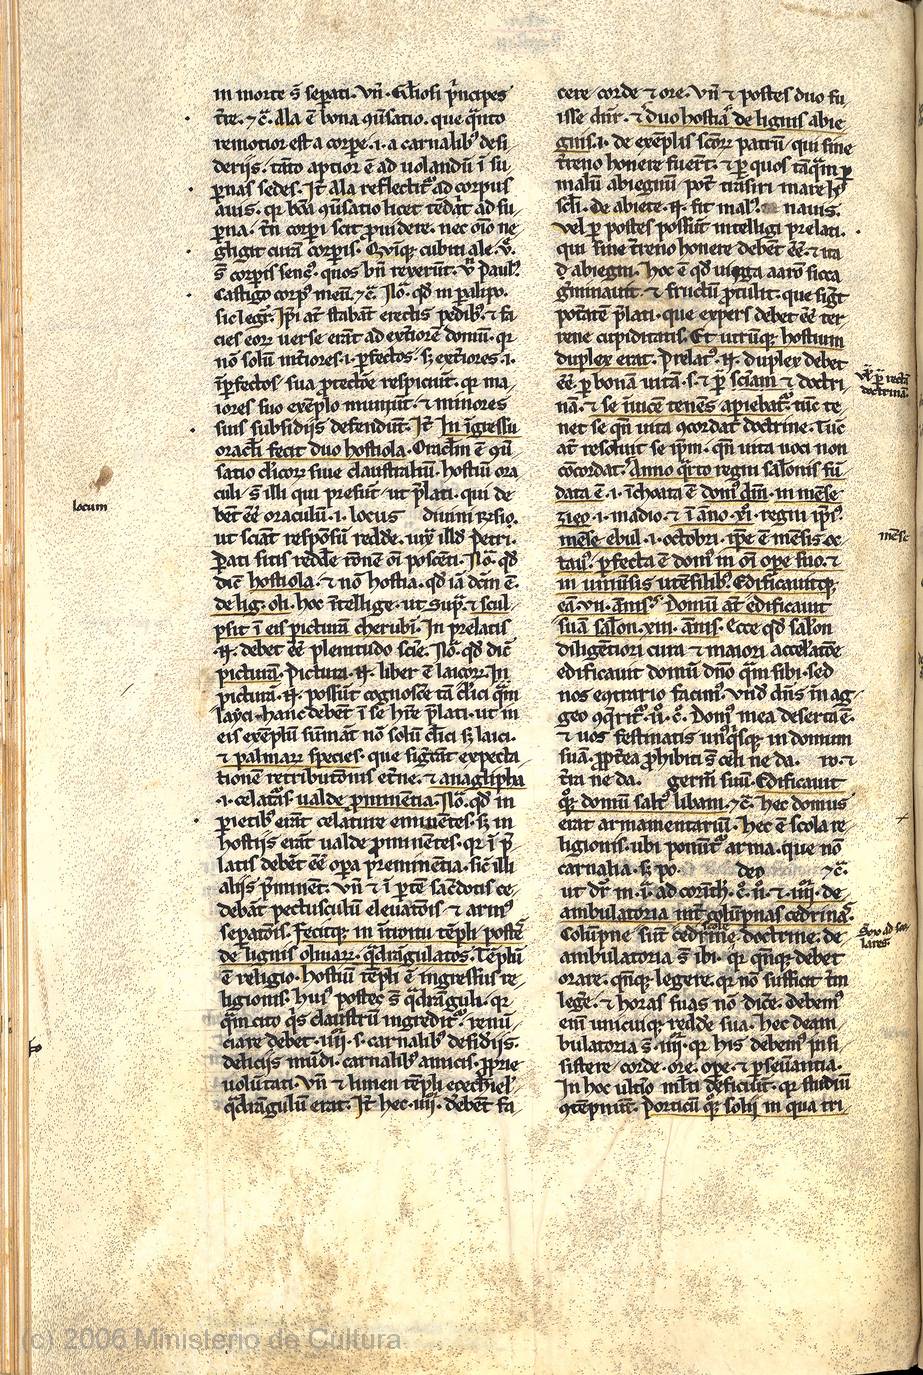 in morte s̄ sepati. vn̄. Gl̄iosi p̄ncipes
t̄re. ⁊c̄. Ala ē bona 9ūsatio. que q̄nto
remotior est a corpe. i. a carnalib; desi
derijs. tāto aptior ē ad uolandū ī su
p̄nas sedes. It̄ Ala reflectit̄ ad corpus
auis. qr bōa 9ūsatio licet tēdat ad su
p̄na. tn̄ corpi scit p̄uidere. nec oīo ne
ghgit curā corpis. Quīq; cubiti ale. v̄.
s̄ corpis sens9. quos bn̄ rexerūt. v̄ Paul9.
Castigo corp9 meū. ⁊c̄. No̅. qd̄ in palipo.
sic legr̄. Ipi at̄ stabāt erectis pedib; ⁊ fa
cies eoꝝ uerse erāt ad ext̄iorē domū. qr
nō solū int̄iores. i. pfectos. sꝫ ext̄iores. i.
īpfectos. sua ptectōe respiciūt. qr ma
iores suo exēplo muniūt. ⁊ minores
suis subsidijs defendūt. It̄ In īgressu
orac̄li fecit duo hostiola. Orac̄lm ē 9ū
satio cl̄icoꝝ siue claustraliū. hostiū ora
culi s̄ illi qui presūt. ut p̄lati. qui de
bēt eē oraculū. i. locus diuini rn̄sio.
ut sciāt respōsū redde. iux̄ illd̄ Petri.
Pati sitis redde rōnē oī poscēti. No̅. qd̄
dic̄ hostiola. ⁊ nō hostia. qd̄ iā dc̄m ē.
de lig. oli. hoc ītellige. ut sup̄. ⁊ scul
psit ī eis picturā cherubī. In prelatis
.n. debet eē plenitudo scīe. No̅. qd̄ dic̄
picturā. Pictura .n. liber ē laicoꝝ. In
picturā .n. possūt cognosce tā cl̄ici q̄m
layci. hanc debēt ī se hr̄e p̄lati. ut in
eis exēplū sumāt nō solū cl̄ici sꝫ laici.
⁊ palmaꝝ species. que sigt̄āt expecta
tionē retributiōnis et̄ne. ⁊ anaglipha
.i. celat̄as ualde pminētia. No̅. qd̄ in
pietib; erāt celature eminētes. sꝫ in
hostijs erāt ualde pminētes. qr ī p̄
latis debēt eē opa p̄eminētia. sic̄ illi
alijs p̄minēt. vn̄ ⁊ ī ptē sac̄dotis ce
debāt pectusculū eleuatōis ⁊ arm9
sepatōis. Fecitq; in ītroitu tēpli postes
de lignis oliuaꝝ. q̄drāgulatos. Tēplū
ē religio. hostiū tēpli ē ingressus re
ligionis. hui9 postes s̄ q̄drāguli. qr
q̄m cito q̄s claustrū ingredit̄. renū
ciare debet. iiij. s. carnalib; desidijs.
delicijs mūdi. carnalib; amicis. pprie
volūtati. Vn̄ ⁊ limen tēpli ezechiel9
q̄drāgulū erat. It̄ hec. iiij. debēt fa
locum
cere corde ⁊ ore. Vn̄ ⁊ postes duo fu
isse dn̄r. ⁊ duo hostia de lignis abie
gnis. i. de exēplis sc̄oꝝ patrū. qui sine
t̄reno honere fuer̄t. ⁊ p quos tāq̄m p
malū abiegnū pōt trāsiri mare h9
sc̄li. de abiete .n. fit mal9. nauis.
vel p postes possūt intelligi prelati.
qui sine t̄reno honere debēt eē. ⁊ ita
d̄ abiegni. hoc ē qd̄ uirga aarō sicca
ḡminauit. ⁊ fructū ptulit. que sigt̄
pot̄atē p̄lati. que expers debet eē ter
rene cupiditatis. Et utrūq; hostium
duplex erat. Prelat9 .n. duplex debet
eē. p bonā uitā. s. ⁊ p sciam ⁊ doctri
nā. ⁊ se īuicē tenēs apiebat̄. tūc te
net se qn̄ uita 9cordat doctrine. Tūc
at̄ resoluit se ipm. qn̄ uita uoci non
cōcordat. Anno q̄rto regni salonis fū
data ē. i. īchoata ē dom9 dn̄i. in mēse
zieo. i. madio. ⁊ ī āno .xi. regni ipi9.
mēse ebul. i. octobri. ipe ē mēsis oc
tau9. pfecta ē dom9 in oī ope suo. ⁊
in uniūsis utēsilib;. Edificauitq;
eā. vii. ānis. Domū at̄ edificauit
suā salon. xiii. ānis. Ecce qd̄ salon
diligētiori cura ⁊ maiori accelatōe
edificauit domū dn̄o q̄m sibi. sed
nos eqtrario facim9. Vnd̄ dn̄s īn ag
geo 9q̄rit̄. ii. c̄. Dom9 mea deserta ē.
⁊ uos festinatis unq̄sq; in domum
suā. pptea phibiti s̄ celi ne da. ro. ⁊
t̄ra ne da. germ̄ suū. Edificauit
q̄; domū salt9 libani. ⁊c̄. hec domus
erat armamentariū. hec ē scola re
ligionis. ubi ponūt̄ arma. que nō
carnalia. sꝫ po deo ⁊c̄.
ut dr̄ in .ii. ad corīth. c̄. ii. ⁊ .iiij. de
ambulatoria int̄ colūpnas cedrinas.
Colūpne sūt cedrine scole doctrine. de
ambulatoria s̄ ibi. qr qn̄q; debet
orare. qn̄q; legere. qr nō sufficit tm̄
lege. ⁊ horas suas nō dice. debem9
enī unicuiq; redde sua. hec deam
bulatoria s̄ .iiij. qr his debem9 īsi
sistere. corde. ore. ope. ⁊ pseuātia.
In hoc ultīo ml̄ti deficiūt. qr studiū
9tēpnūt. Porticū q̄; solij in qua tri
vl̄ p̄ rectā
doctrinā.
mēse
locum
(c) 2006 Ministerio de Cultura